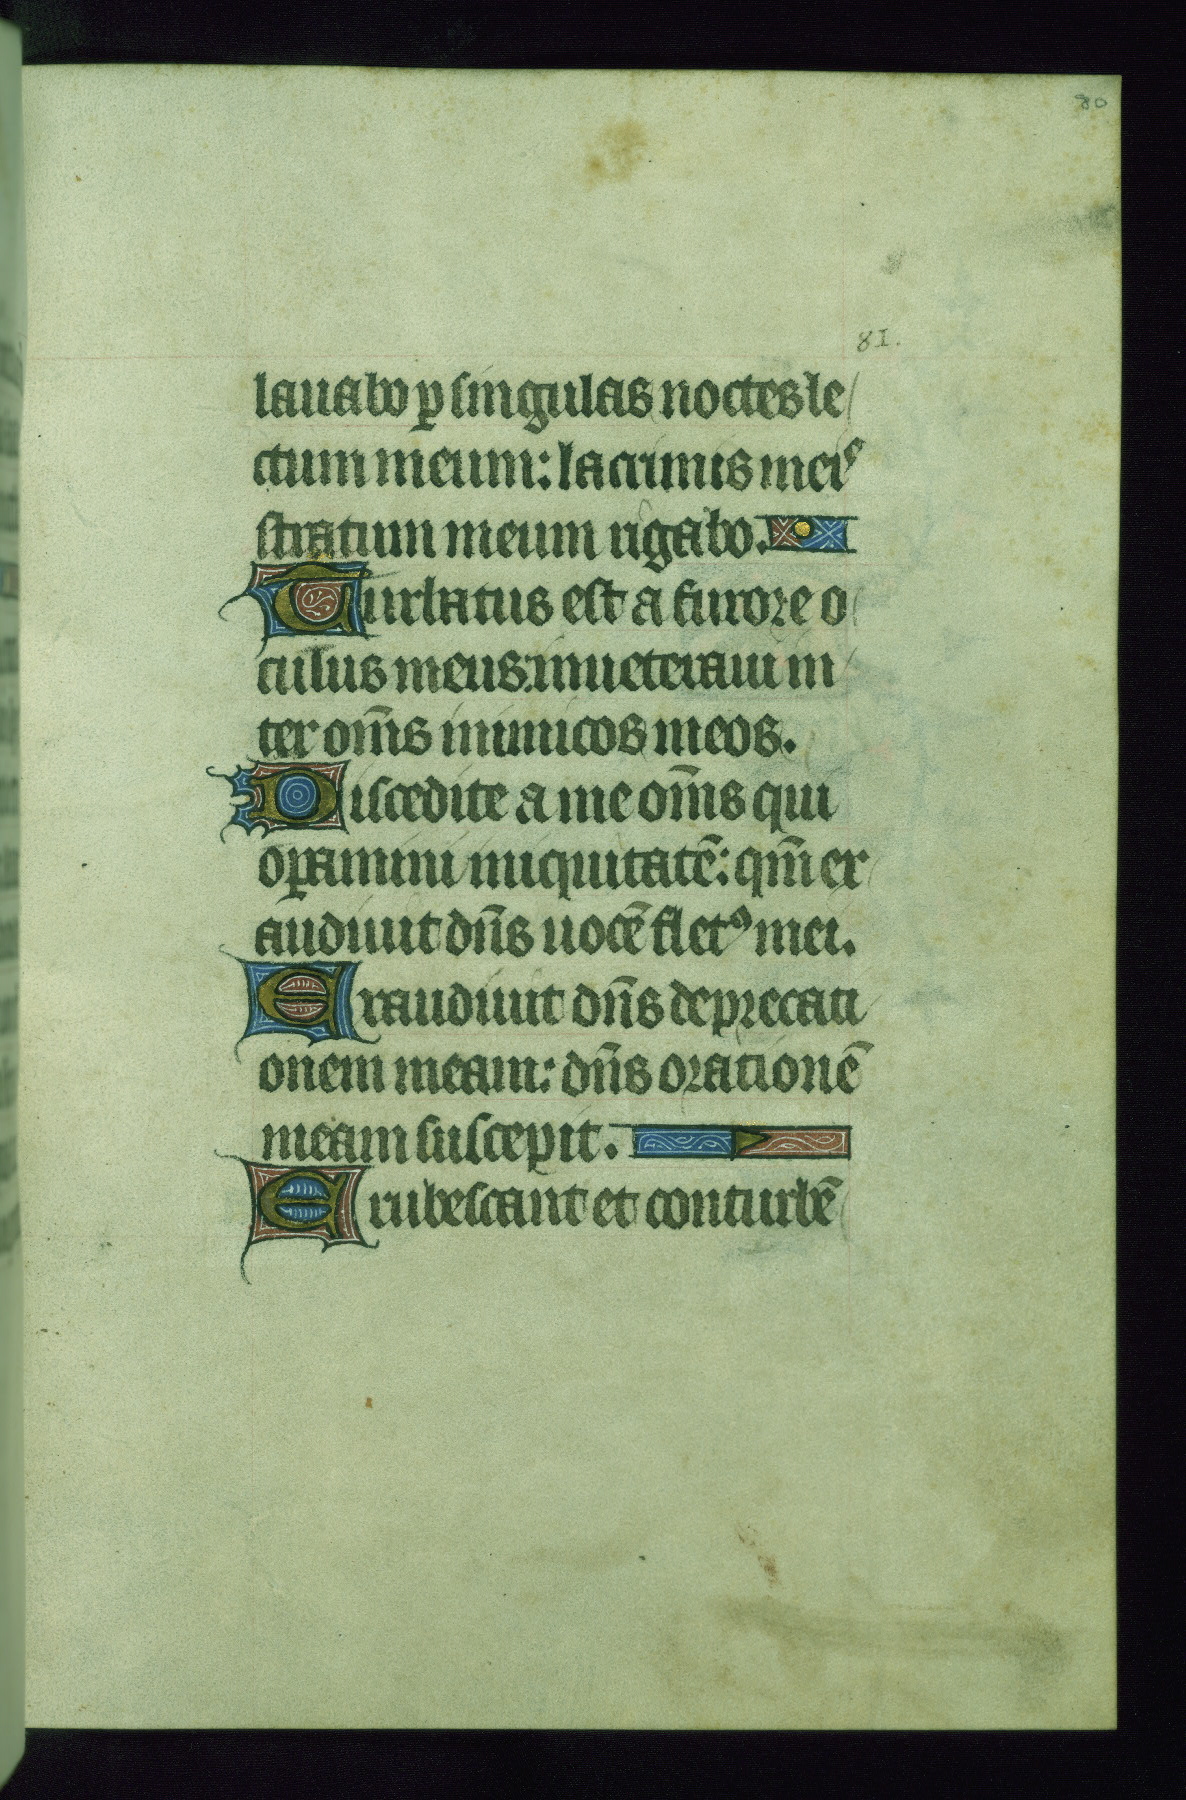 80
81.
lauabo ꝑ singulas noctes le
ctum meum: lacrimis meis
stratum meum rigabo.
Turbatus est a furore o
culus meus: inueteraui in
ter om̄s inimicos meos.
Discedite a me om̄s qui
oꝑamini iniquitatē: qm̄ ex
audiuit dn̄s uocē flet᷒ mei.
Exaudiuit dn̄s deprecati
onem meam: dn̄s orationē
meam suscepit.
Erubescant et conturbē